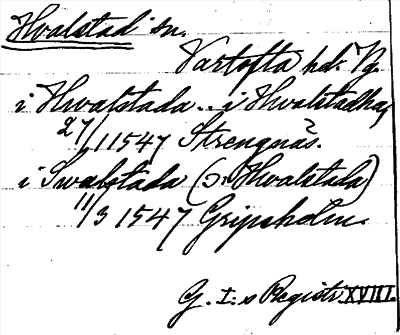 Hvalstad sn.
Vartofta hd. Vg.
i Hwalstada .. i Hwalstadha,
27/1 1547 Strengnäs.
i Swalstada (ɔ: Hwalstada)
11/3 1547 Gripsholm.
G. I:s Registr. XVIII.